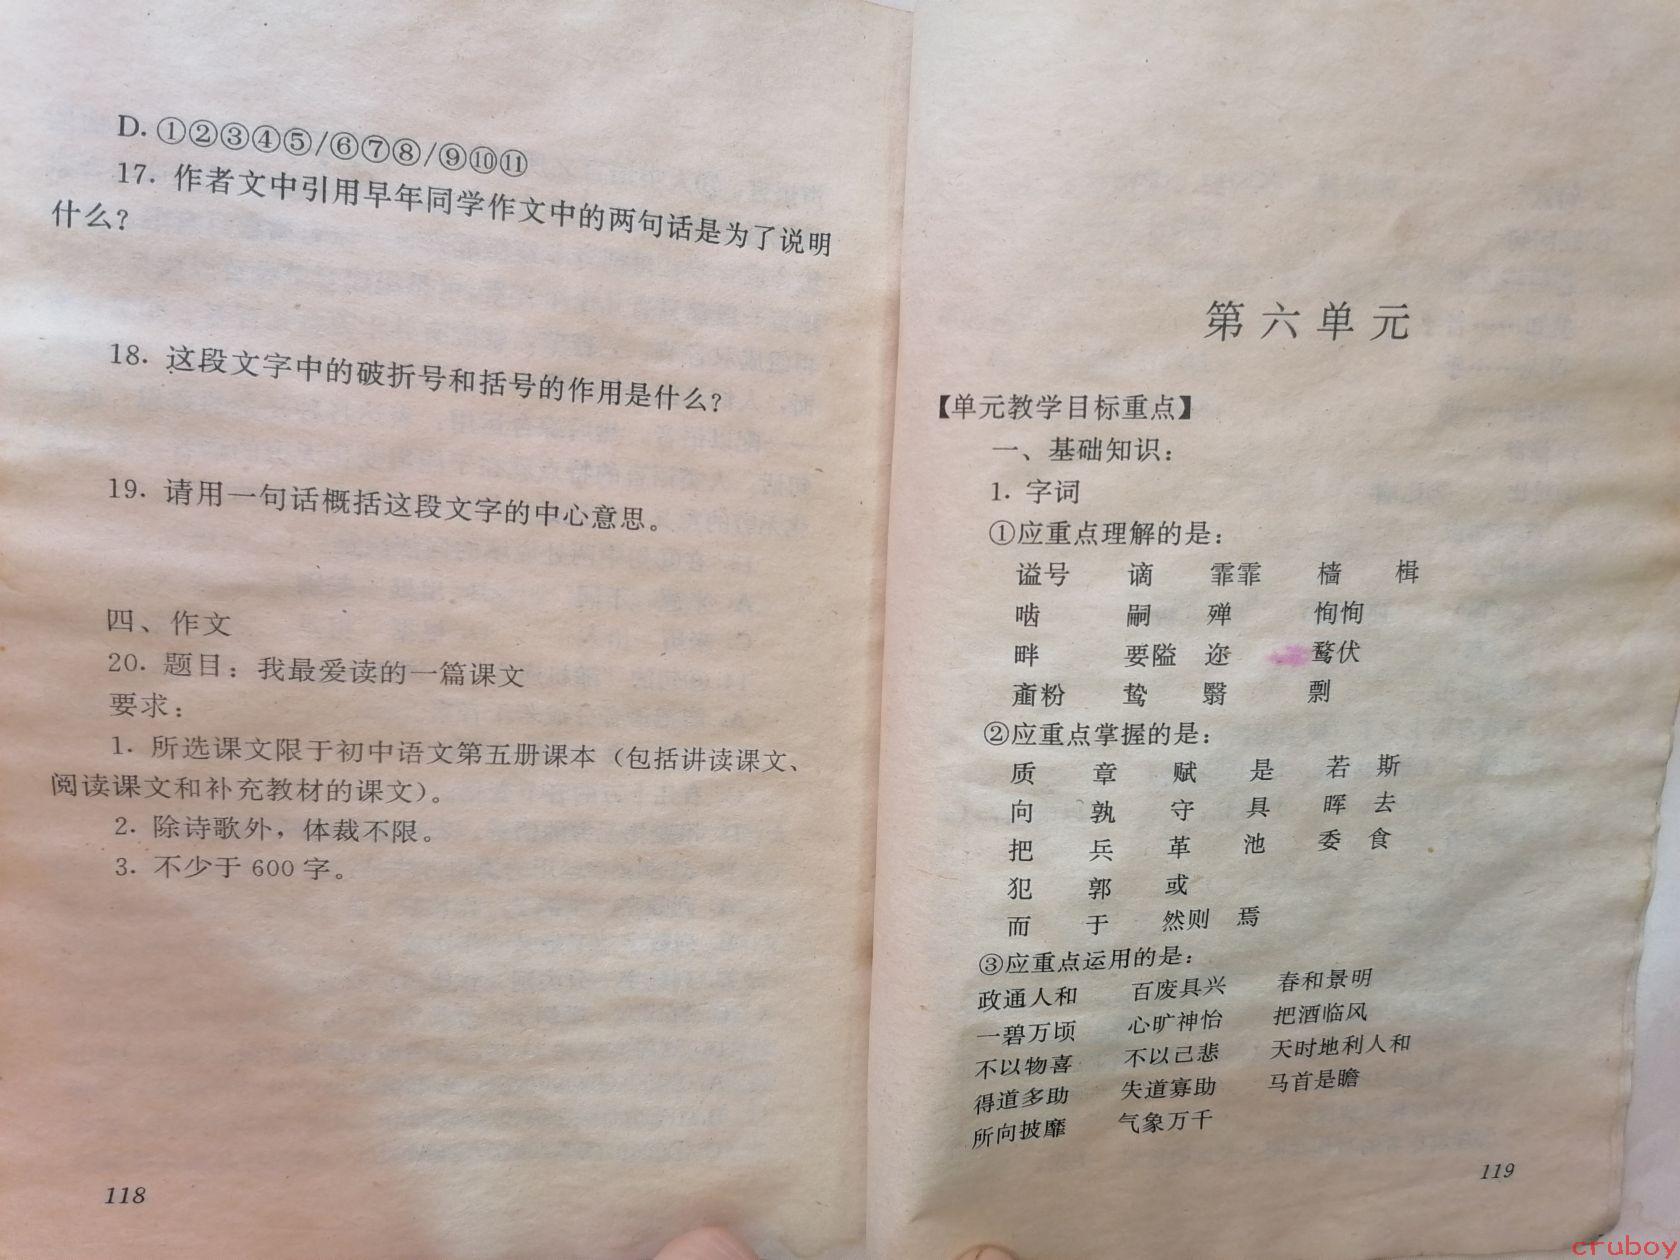 D. ①②③④⑤/⑥⑦⑧/⑨⑩⑪
17. 作者文中引用早年同学作文中的两句话是为了说明
什么？
18. 这段文字中的破折号和括号的作用是什么？
19. 请用一句话概括这段文字的中心意思。
四、作文
20. 题目：我最爱读的一篇课文
要求：
1. 所选课文限于初中语文第五册课本（包括讲读课文、
阅读课文和补充教材的课文）。
2. 除诗歌外，体裁不限。
3. 不少于 600 字。
118
第六单元
【单元教学目标重点】
一、基础知识：
1. 字词
①应重点理解的是：
谥号 谪 霏霏 樯 楫
啮 嗣 殚 恂恂
畔 要隘 迩 鹜伏
齑粉 鸷 翳 剽
②应重点掌握的是：
质 章 赋 是 若 斯
向 孰 守 具 晖 去
把 兵 革 池 委 食
犯 郭 或
而 于 然则 焉
③应重点运用的是：
政通人和 百废具兴 春和景明
一碧万顷 心旷神怡 把酒临风
不以物喜 不以己悲 天时地利人和
得道多助 失道寡助 马首是瞻
所向披靡 气象万千
119
cruboy